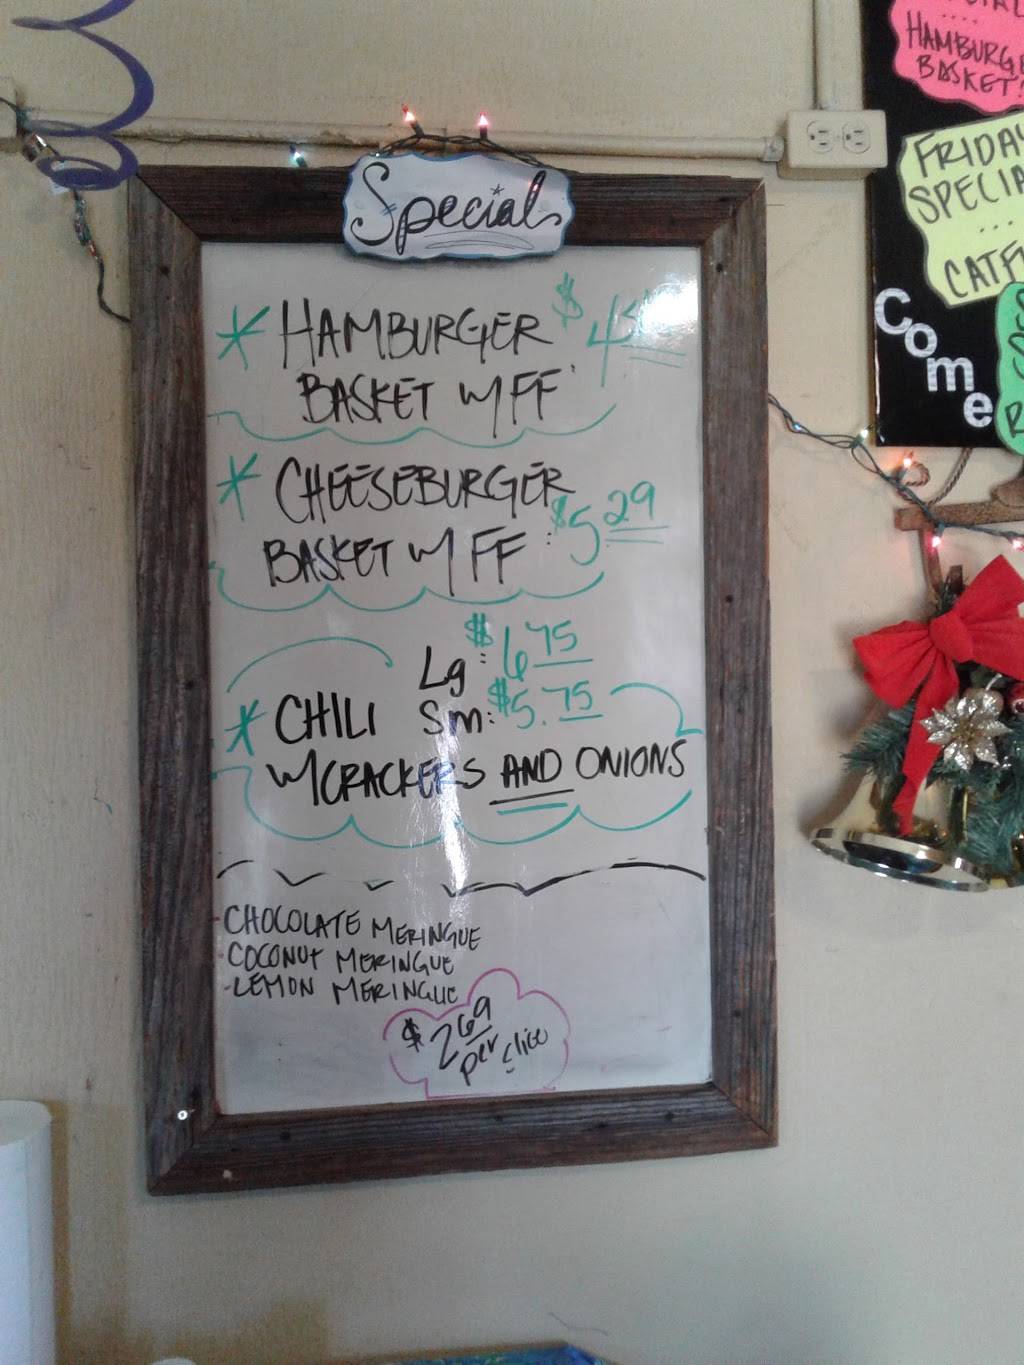 Special
* HAMBURGER $4
BASKET w/ FF
* CHEESEBURGER
BASKET w/ FF : $5 29
Lg : $6 75
* CHILI Sm: $5.75
w/ CRACKERS AND ONIONS
- CHOCOLATE MERINGUE
- COCONUT MERINGUE
- LEMON MERINGUE
$2 69
per slice
HAMBURGE
BASKET!
FRIDAY
SPECIA
....
CATF
Come